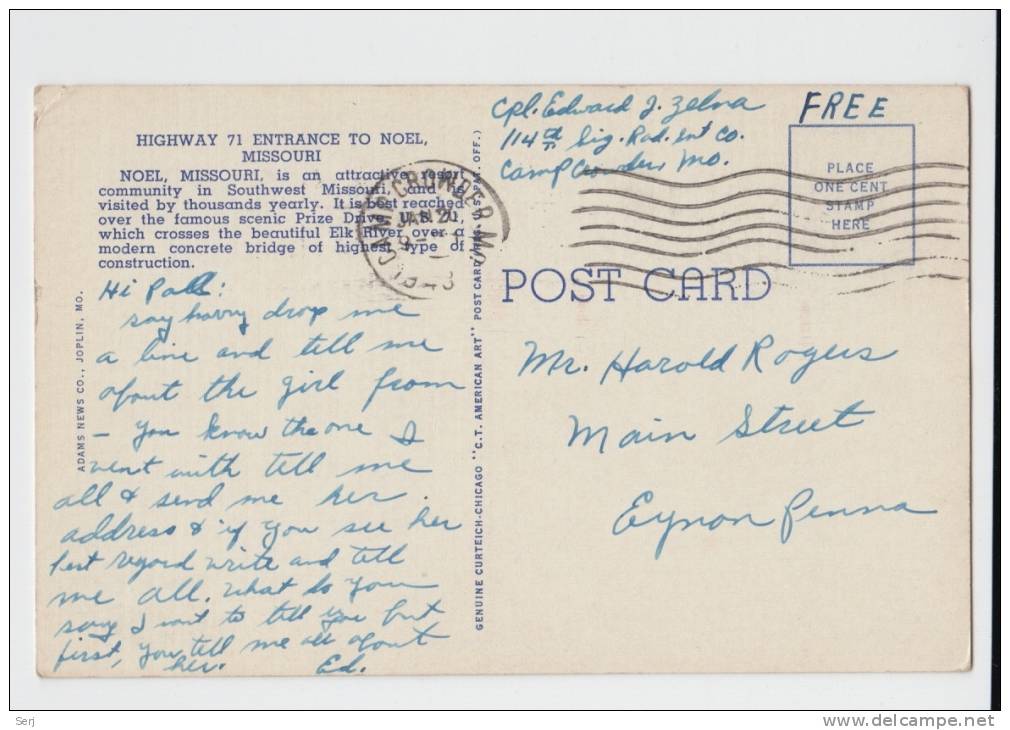 HIGHWAY 71 ENTRANCE TO NOEL,
MISSOURI
NOEL, MISSOURI, is an attractive resort
community in Southwest Missouri, and is
visited by thousands yearly. It is best reached
over the famous scenic Prize Drive, U. S. 71,
which crosses the beautiful Elk River over a
modern concrete bridge of highest type of
construction.
Hi Pall:
say harry drop me
a line and tell me
about the girl from
— you know the one I
went with tell me
all & send me her
address & if you see her
best regard write and tell
me all. What do you
say I want to tell you but
first, you tell me all about
her. Ed.
ADAMS NEWS CO., JOPLIN, MO.
GENUINE CURTEICH-CHICAGO "C.T. AMERICAN ART" POST CARD (REG. U.S. PAT. OFF.)
Cpl. Edward J. Zelna
114th Sig. Rad. Int Co.
Camp Crowder, Mo.
FREE
CAMP CROWDER, MO.
JAN 20
9
1943
PLACE
ONE CENT
STAMP
HERE
POST CARD
Mr. Harold Rogers
Main Street
Eynon Penna
Serj
www.delcampe.net